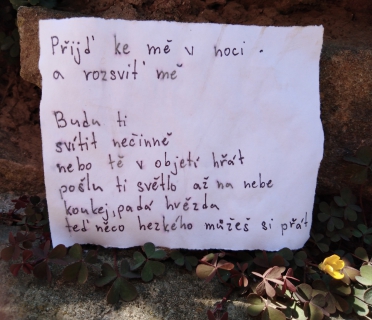 Přijď ke mě v noci.
a rozsviť mě
Budu ti
svítit nečinně
nebo tě v objetí hřát
pošlu ti světlo až na nebe
koukej, padá hvězda
teď něco hezkého můžeš si přát